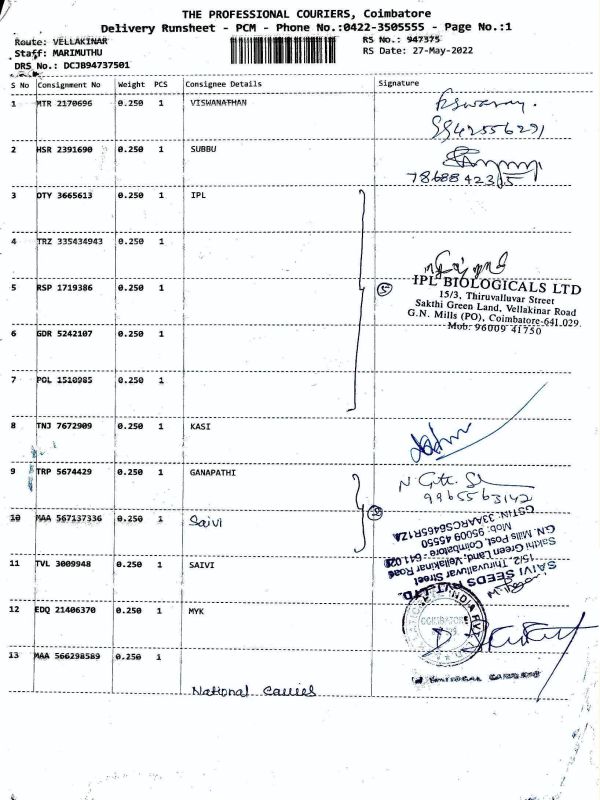 THE PROFESSIONAL COURIERS, Coimbatore
Delivery Runsheet - PCM - Phone No.:0422-3505555 - Page No.:1
Route: VELLAKINAR
Staff: MARIMUTHU
DRS No.: DCJB94737501
RS No.: 947375
RS Date: 27-May-2022
S No Consignment No Weight PCS Consignee Details Signature
1 MTR 2170696 0.250 1 VISWANATHAN
9942556291
2 HSR 2391690 0.250 1 SUBBU
7868842315
3 DTY 3665613 0.250 1 IPL
4 TRZ 335434943 0.250 1
5 RSP 1719386 0.250 1
5
IPL BIOLOGICALS LTD
15/3, Thiruvalluvar Street
Sakthi Green Land, Vellakinar Road
G.N. Mills (PO), Coimbatore-641 029.
Mob: 96009 41750
6 GDR 5242107 0.250 1
7 POL 1510985 0.250 1
8 TNJ 7672909 0.250 1 KASI
9 TRP 5674429 0.250 1 GANAPATHI
9965563142
10 MAA 567137336 0.250 1 Saivi
11 TVL 3009948 0.250 1 SAIVI
SAIVI SEEDS PVT. LTD.
15/2, Thiruvalluvar Street
Sakthi Green Land, Vellakinar Road
GN. Mills Post, Coimbatore - 641 029
Mob: 95009 45550
GSTIN: 33AARCS6465R1ZA
12 EDQ 21406370 0.250 1 MYK
COIMBATORE
13 MAA 566298589 0.250 1
National Carries